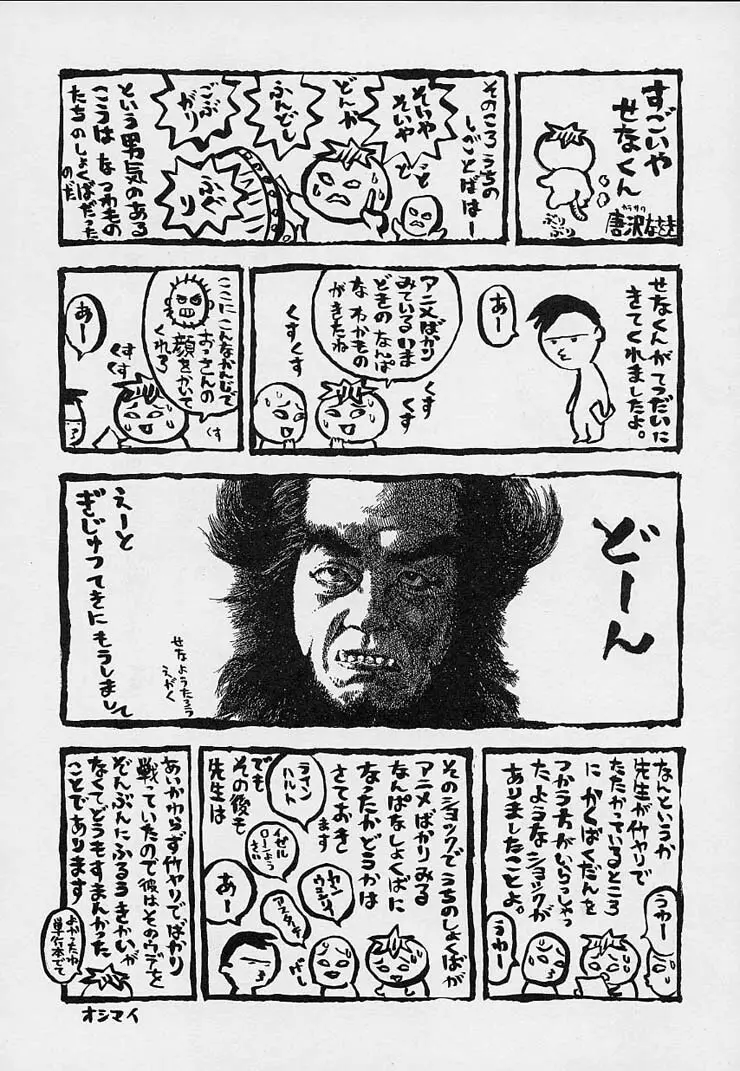 すごいや
せなくん
カラサワ
唐沢なをき
ぷりぷり
そのころうちの
しごとばはー
そいや
そいや
どんが
どんが
ふんどし
ごぶ
がり
ふぐ
り
という男気のある
こうはなつわもの
たちのしょくばだった
のだ
せなくんがてつだいに
きてくれましたよ。
あー
アニメばかり
みているいま
どきのなんぱ
なわかもの
がきたね
くすくす
くすくす
ここにこんなかんじで
おっさんの
顔をかいて
くれろ
くすくす
くす
あー
どーん
せなようたろう
えがく
えーと
ぎじゅつてきにもうしまして
なんというか
先生が竹ヤリで
たたかっているところ
にかくばくだんを
つかう方がいらっしゃっ
たようなショックが
ありましたことよ。
うわー
うわー
そのショックでうちのしょくばが
アニメばかりみる
なんぱなしょくばに
なったかどうかは
さておきし
ます
ライン
ハルト
イゼル
ローンようさい
ヤン
ウエンリー
アスターテ
あー
でも
その後も
先生は
あいかわらず竹ヤリでばかり
戦っていたので彼はそのウデを
ぞんぶんにふるうきかいが
なくてどうもすまんかった
ことであります
よかったね
単行本でて
オシマイ